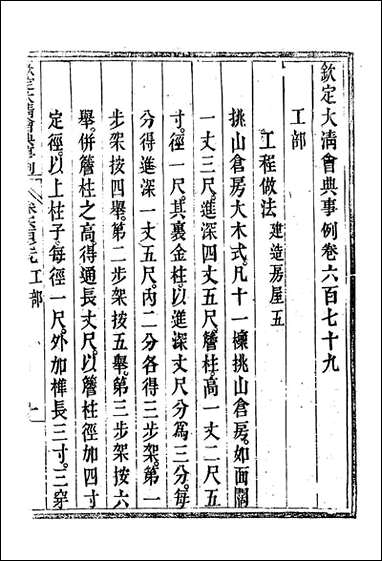 欽定大清會典事例卷六百七十九
工部
工程做法建造房屋五
挑山倉房大木式。凡十一檁挑山倉房。如面闊
一丈三尺。進深四丈五尺。簷柱。高一丈二尺五
寸。徑一尺。其裏金柱。以進深丈尺分爲三分。每
分得進深一丈五尺。內二分各得三步架。第一
步架按四舉。第二步架按五舉。第三步架按六
舉。併簷柱之高。得通長丈尺。以簷柱徑加四寸
定徑。以上柱子。每徑一尺。外加榫長三寸。三穿
欽定大清會典事例
工部